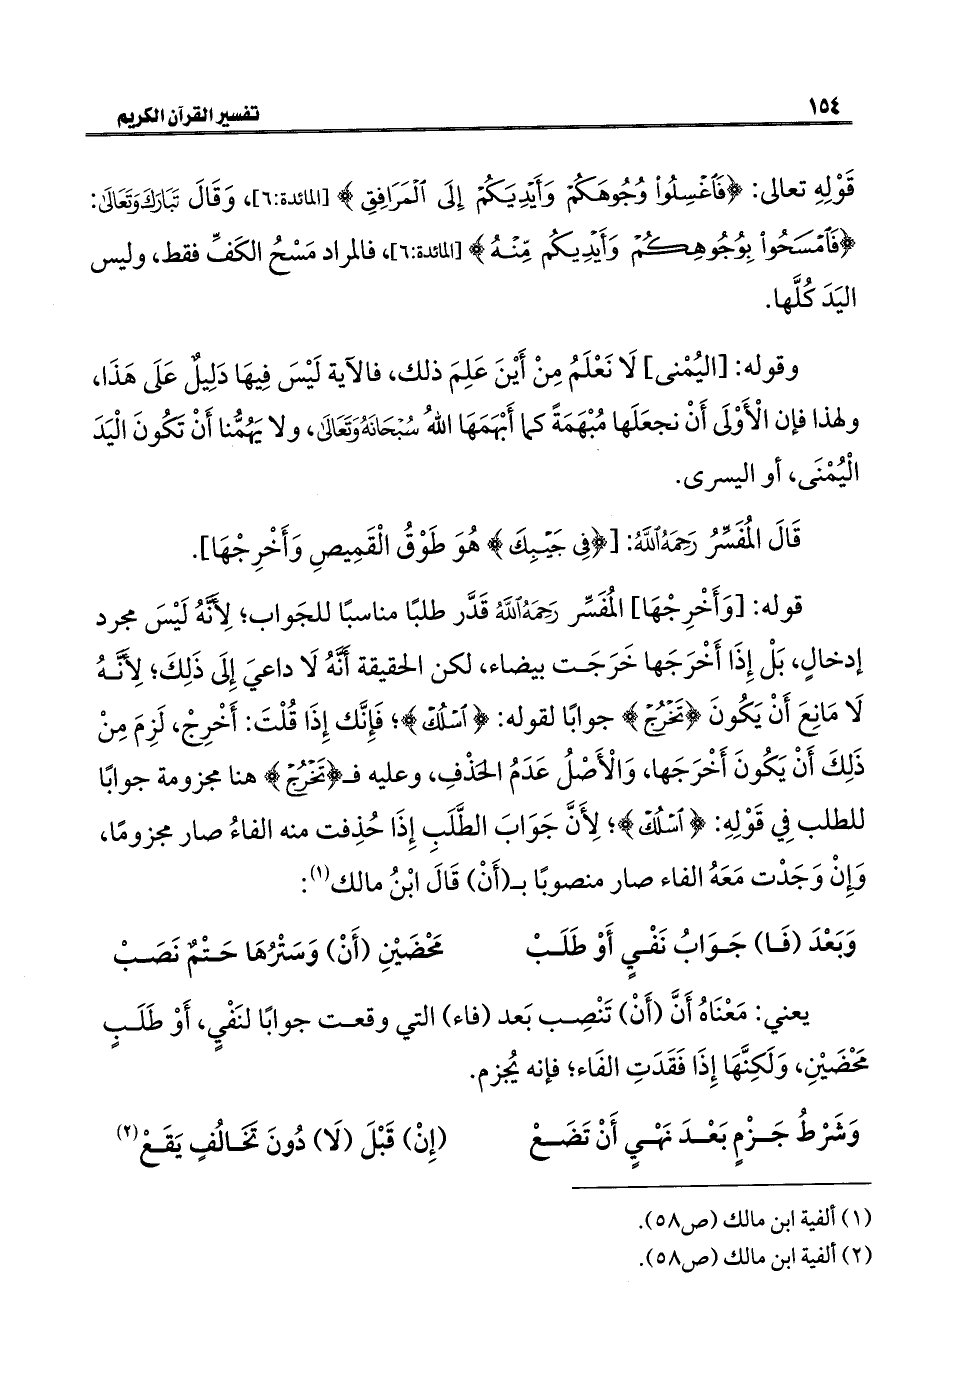 ١٥٤ تفسير القرآن الكريم
قَوْلِهِ تعالى: ﴿فَٱغْسِلُوا۟ وُجُوهَكُمْ وَأَيْدِيَكُمْ إِلَى ٱلْمَرَافِقِ﴾ [المائدة:٦]، وَقَالَ تَبَارَكَ وَتَعَالَىٰ:
﴿فَٱمْسَحُوا۟ بِوُجُوهِكُمْ وَأَيْدِيكُم مِّنْهُ﴾ [المائدة:٦]، فالمراد مَسْحُ الكَفِّ فقط، وليس
اليَدَ كُلَّها.
وقوله: [اليُمْنى] لَا نَعْلَمُ مِنْ أَيْنَ عَلِمَ ذلك، فالآية لَيْسَ فِيهَا دَلِيلٌ عَلَى هَذَا،
ولهذا فإن الْأَوْلَى أَنْ نجعَلَها مُبْهَمَةً كما أَبْهَمَهَا اللهُ سُبْحَانَهُ وَتَعَالَىٰ، ولا يَهُمُّنا أَنْ تَكُونَ الْيَدَ
الْيُمْنَى، أو اليسرى.
قَالَ المُفَسِّرُ رَحِمَهُ ٱللَّهُ: [﴿فِى جَيْبِكَ﴾ هُوَ طَوْقُ الْقَمِيصِ وَأَخْرِجْهَا].
قوله: [وَأَخْرِجْهَا] المُفَسِّر رَحِمَهُ ٱللَّهُ قَدَّر طلبًا مناسبًا للجواب؛ لِأَنَّهُ لَيْسَ مجرد
إدخالٍ، بَلْ إِذَا أَخْرَجَها خَرَجَت بيضاء، لكن الحقيقة أَنَّهُ لَا داعيَ إِلَى ذَلِكَ؛ لِأَنَّهُ
لَا مَانِعَ أَنْ يَكُونَ ﴿تَخْرُجْ﴾ جوابًا لقوله: ﴿ٱسْلُكْ﴾؛ فَإِنَّك إِذَا قُلْتَ: أَخْرِجْ، لَزِمَ مِنْ
ذَلِكَ أَنْ يَكُونَ أَخْرَجَها، وَالْأَصْلُ عَدَمُ الحَذْفِ، وعليه فـ﴿تَخْرُجْ﴾ هنا مجزومة جوابًا
للطلب فِي قَوْلِهِ: ﴿ٱسْلُكْ﴾؛ لِأَنَّ جَوَابَ الطَّلَبِ إِذَا حُذِفت منه الفاءُ صار مجزومًا،
وَإِنْ وَجَدْت مَعَهُ الفاء صار منصوبًا بـ(أَنْ) قَالَ ابْنُ مالك(١):
وَبَعْدَ (فَا) جَوَابُ نَفْيٍ أَوْ طَلَبْ مَحْضَيْنِ (أَنْ) وَسَتْرُهَا حَتْمٌ نَصَبْ
يعني: مَعْنَاهُ أَنَّ (أَنْ) تَنْصِب بَعد (فاء) التي وقعت جوابًا لنَفْيٍ، أَوْ طَلَبٍ
مَحْضَيْنِ، وَلَكِنَّهَا إِذَا فَقَدَتِ الفَاء؛ فإنه يُجزم.
وَشَرْطُ جَزْمٍ بَعْدَ نَهْيٍ أَنْ تَضَعْ (إِنْ) قَبْلَ (لَا) دُونَ تَخَالُفٍ يَقَعْ(٢)
(١) ألفية ابن مالك (ص٥٨).
(٢) ألفية ابن مالك (ص٥٨).